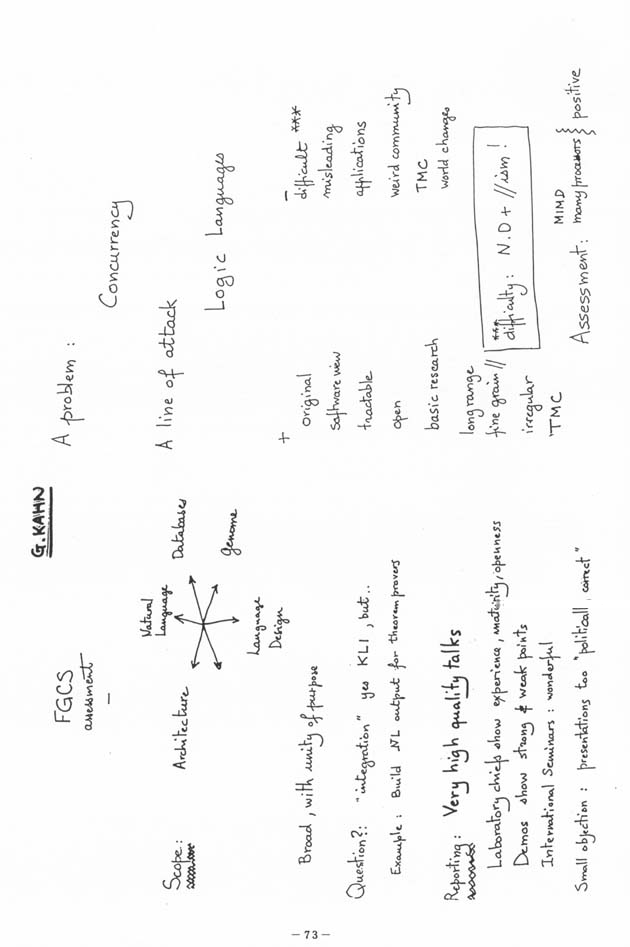 G. KAHN
FGCS
assessment
Scope:
Architecture
Natural
Language
Databases
Genome
Language
Design
Broad, with unity of purpose
Question?: "integration" yes KLI, but..
Example: Build NL output for theorem provers
Reporting: Very high quality talks
Laboratory chiefs show experience, maturity, openness
Demos show strong & weak points
International Seminars: wonderful
Small objection: presentations too "politicall. correct"
A problem:
Concurrency
A line of attack
Logic Languages
+
original
software view
tractable
open
basic research
long range
fine grain //
irregular
TMC
–
difficult ***
misleading
applications
weird community
TMC
world changes
***
difficulty: N.D + //ism!
Assessment: MIMD
many processors } positive
– 73 –